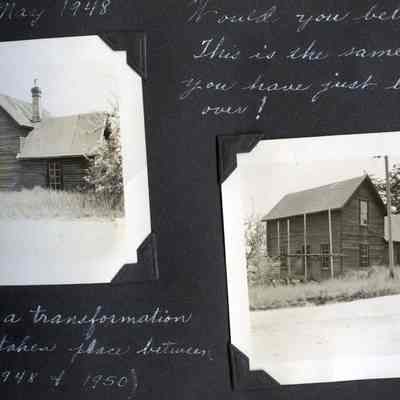 May 1948
Would you bel
This is the same
you have just l
over!
a transformation
taken place between
1948 & 1950)